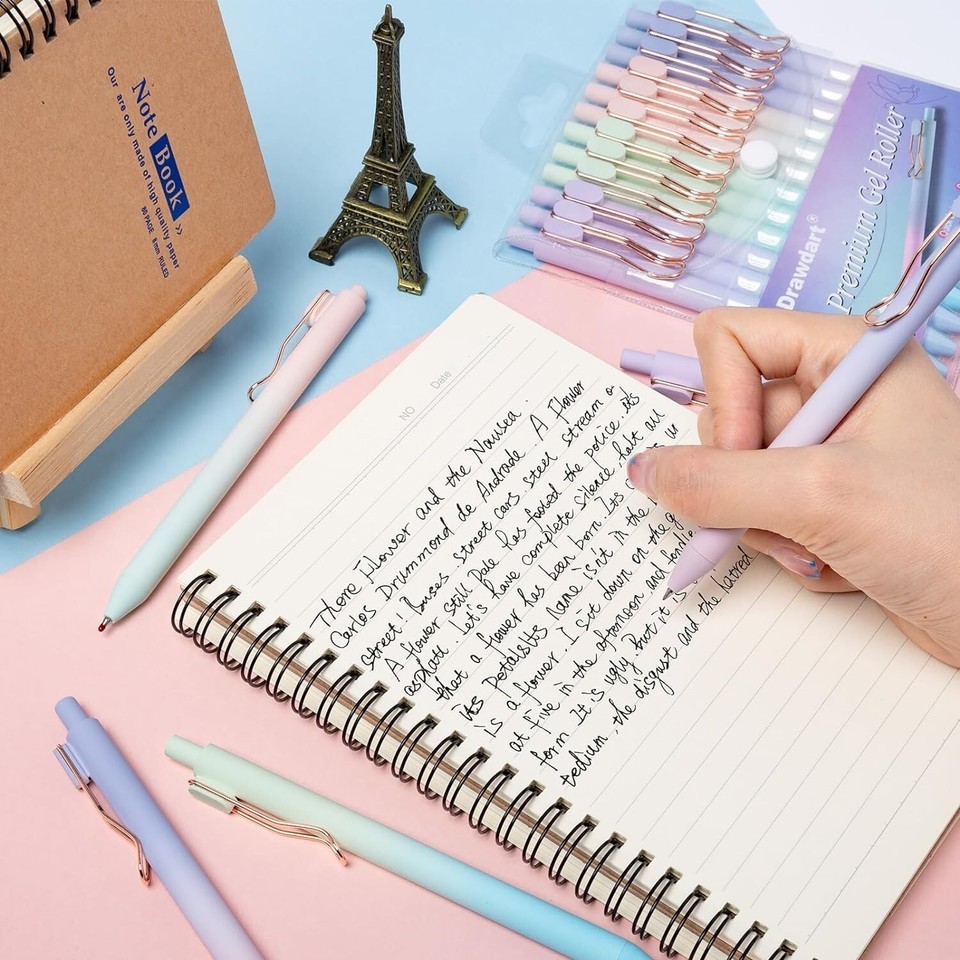 Note Book >>
Our are only made of high quality paper
80 PAGE 8mm RULED
Drawdart®
Premium Gel Roller
NO Date
Thore Flower and the Nausea.
Carlos Drummond de Andrade A Flower
street! Buses street cars steel stream o
A flower still Pale has fooled the police. its
asphalt let's have complete silence halt all
that a flower has been born. Its
its PetalsIts Name isn't in the
is a flower. I sit down on the g
at five in the afternoon and fondle
form It is ugly But it is
tedium, the disgust and the hatred